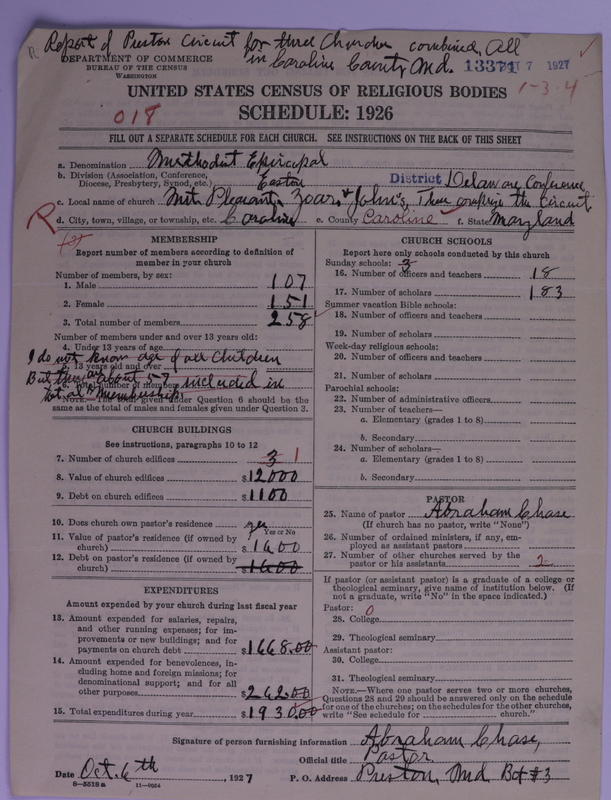 Report of Preston Circuit for three Churches combined. All
in Caroline County, Md.
DEPARTMENT OF COMMERCE
BUREAU OF THE CENSUS
WASHINGTON
13371 OCT 7 1927
1-3-4
UNITED STATES CENSUS OF RELIGIOUS BODIES
018
SCHEDULE: 1926
FILL OUT A SEPARATE SCHEDULE FOR EACH CHURCH. SEE INSTRUCTIONS ON THE BACK OF THIS SHEET
a. Denomination Methodist Episcopal
b. Division (Association, Conference,
Diocese, Presbytery, Synod, etc.) Easton District Delaware Conference
c. Local name of church Mt. Pleasant, Zoar, & John's, These comprise the Circuit
R
d. City, town, village, or township, etc. Caroline e. County Caroline f. State Maryland
MEMBERSHIP
Report number of members according to definition of
member in your church
Number of members, by sex:
1. Male 107
2. Female 151
3. Total number of members 258
Number of members under and over 13 years old:
4. Under 13 years of age
I do not know age of all Children
5. 13 years old and over
But there are about 57 included in
6. Total number of members
total membership
NOTE.—The total given under Question 6 should be the
same as the total of males and females given under Question 3.
CHURCH BUILDINGS
See instructions, paragraphs 10 to 12
7. Number of church edifices 3 1
8. Value of church edifices $12000
9. Debt on church edifices $1100
10. Does church own pastor's residence yes
Yes or No
11. Value of pastor's residence (if owned by
church) $1600
12. Debt on pastor's residence (if owned by
church) $1600
EXPENDITURES
Amount expended by your church during last fiscal year
13. Amount expended for salaries, repairs,
and other running expenses; for im-
provements or new buildings; and for
payments on church debt $1668.00
14. Amount expended for benevolences, in-
cluding home and foreign missions; for
denominational support; and for all
other purposes $262.00
15. Total expenditures during year $1930.00
CHURCH SCHOOLS
Report here only schools conducted by this church
Sunday schools: 3
16. Number of officers and teachers 18
17. Number of scholars 183
Summer vacation Bible schools:
18. Number of officers and teachers
19. Number of scholars
Week-day religious schools:
20. Number of officers and teachers
21. Number of scholars
Parochial schools:
22. Number of administrative officers
23. Number of teachers—
a. Elementary (grades 1 to 8)
b. Secondary
24. Number of scholars—
a. Elementary (grades 1 to 8)
b. Secondary
PASTOR
25. Name of pastor Abraham Chase
(If church has no pastor, write "None")
26. Number of ordained ministers, if any, em-
ployed as assistant pastors
27. Number of other churches served by the
pastor or his assistants 2
If pastor (or assistant pastor) is a graduate of a college or
theological seminary, give name of institution below. (If
not a graduate, write "No" in the space indicated.)
Pastor: 0
28. College
29. Theological seminary
Assistant pastor:
30. College
31. Theological seminary
NOTE.—Where one pastor serves two or more churches,
Questions 28 and 29 should be answered only on the schedule
for one of the churches; on the schedules for the other churches,
write "See schedule for church."
Signature of person furnishing information Abraham Chase,
Official title Pastor.
Date Oct. 6th, 1927 P. O. Address Preston, Md. Box #3
8—5518a 11—9054